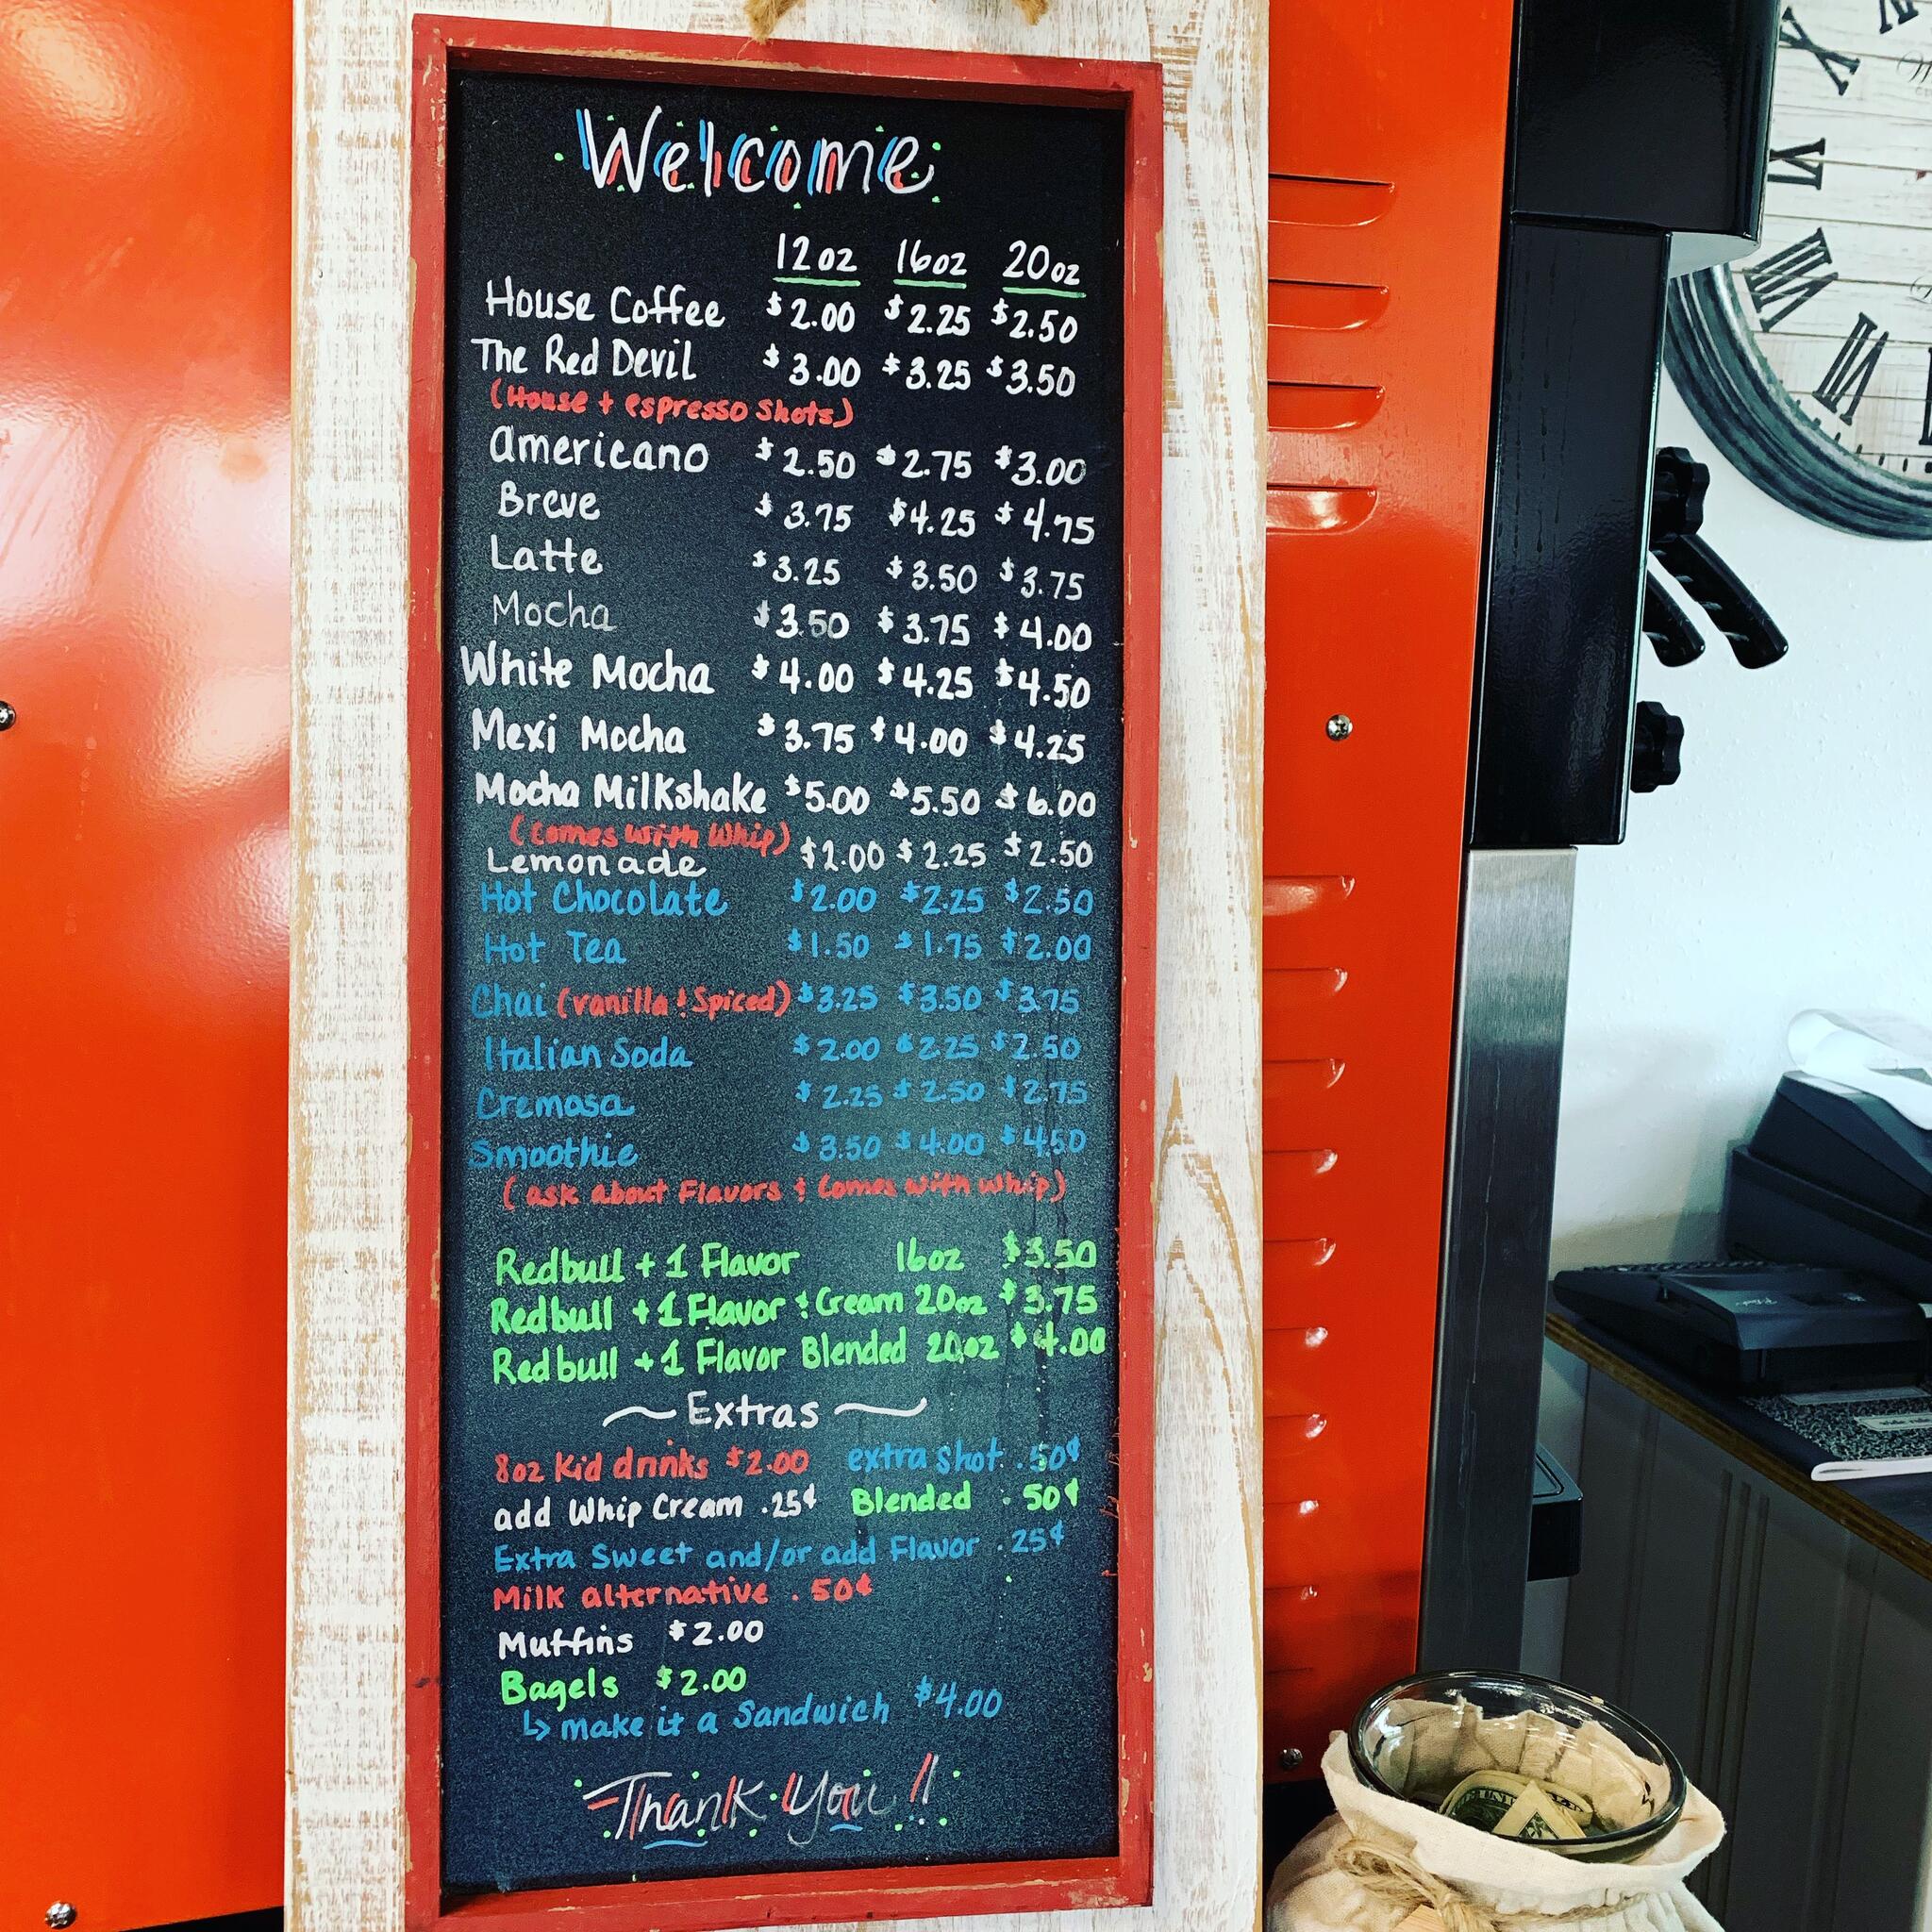 Welcome
12oz 16oz 20oz
House Coffee $2.00 $2.25 $2.50
The Red Devil $3.00 $3.25 $3.50
(House + espresso Shots)
Americano $2.50 $2.75 $3.00
Breve $3.75 $4.25 $4.75
Latte $3.25 $3.50 $3.75
Mocha $3.50 $3.75 $4.00
White Mocha $4.00 $4.25 $4.50
Mexi Mocha $3.75 $4.00 $4.25
Mocha Milkshake $5.00 $5.50 $6.00
(comes with Whip)
Lemonade $2.00 $2.25 $2.50
Hot Chocolate $2.00 $2.25 $2.50
Hot Tea $1.50 $1.75 $2.00
Chai (vanilla & Spiced) $3.25 $3.50 $3.75
Italian Soda $2.00 $2.25 $2.50
Cremasa $2.25 $2.50 $2.75
Smoothie $3.50 $4.00 $4.50
(ask about Flavors & Comes with whip)
Redbull + 1 Flavor 16oz $3.50
Redbull + 1 Flavor & Cream 20oz $3.75
Redbull + 1 Flavor Blended 20oz $4.00
~ Extras ~
8oz Kid drinks $2.00 extra shot .50¢
add Whip Cream .25¢ Blended .50¢
Extra Sweet and/or add Flavor .25¢
Milk alternative .50¢
Muffins $2.00
Bagels $2.00
↳ make it a Sandwich $4.00
Thank You!!